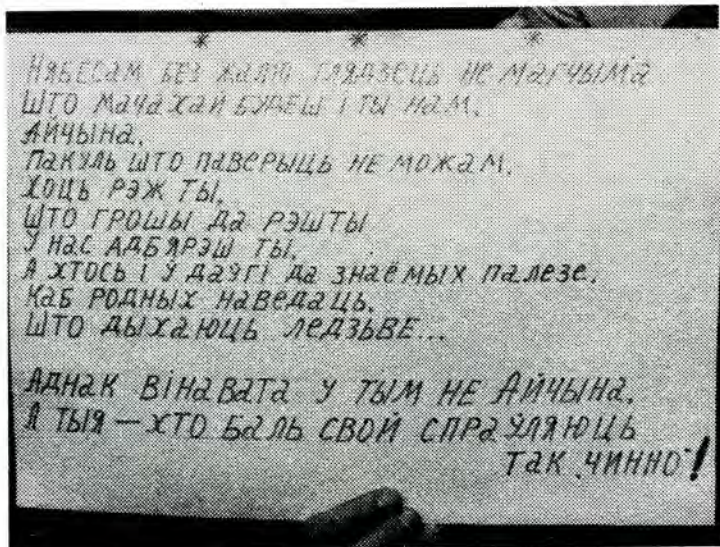 * * *
Нябесам без жалю глядзець не магчыма
што мачахай будеш і ты нам.
Айчына.
Пакуль што паверыць не можам.
Хоць рэж ты.
Што грошы да рэшты
У нас адбярэш ты,
А хтось і ў даўгі да знаёмых палезе.
Каб родных наведаць.
Што дыхаюць ледзьве...
Аднак вінавата у тым не Айчына.
А тыя — хто баль свой спраўляюць
так чинно!